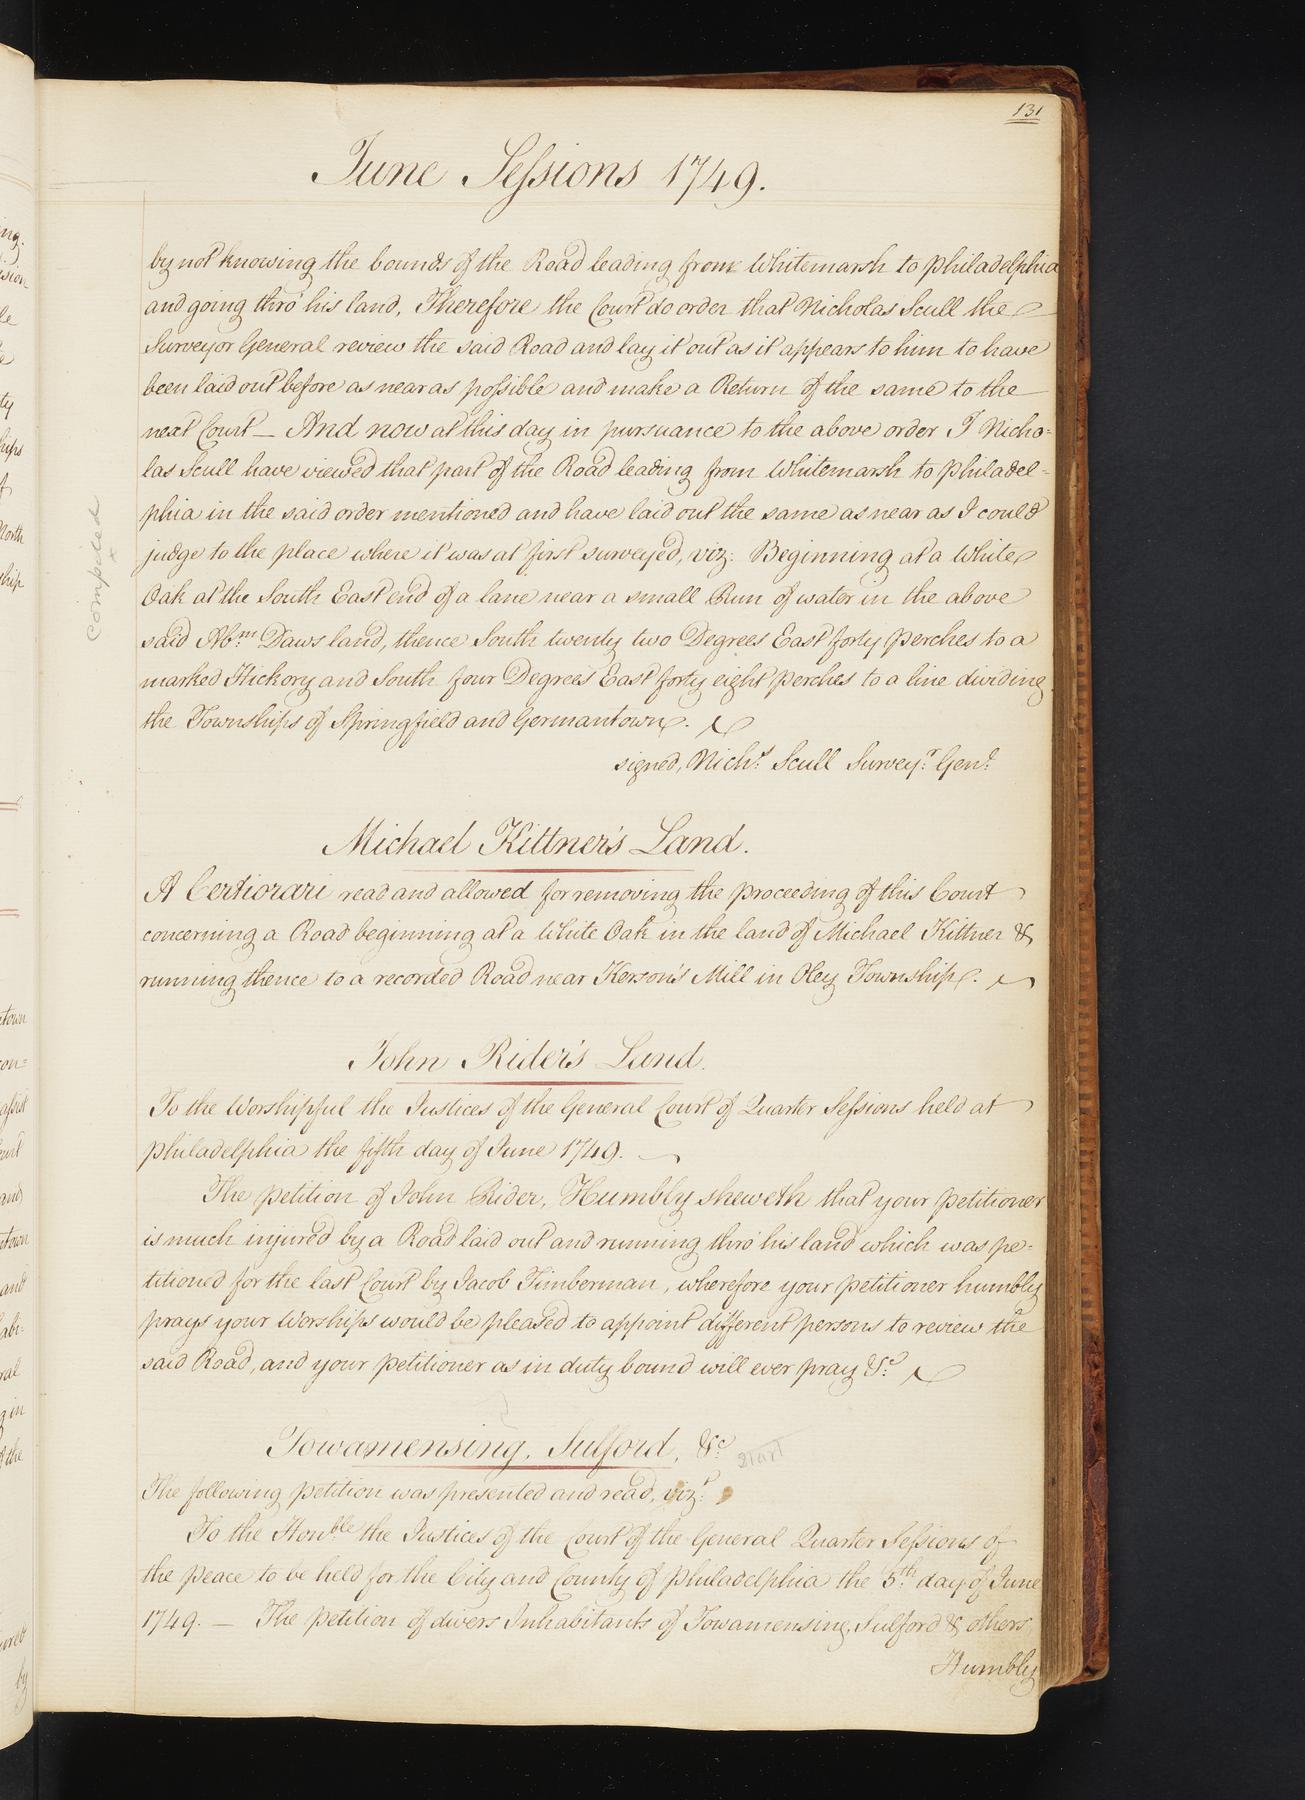 131
June Sessions 1749.
by not knowing the bounds of the Road leading from Whitemarsh to Philadelphia
and going thro' his land, Therefore the Court do order that Nicholas Scull the
Surveyor General review the said Road and lay it out as it appears to him to have
been laid out before as near as possible and make a Return of the same to the
next Court — And now at this day in pursuance to the above order I Nicho=
las Scull have viewed that part of the Road leading from Whitemarsh to Philadel=
phia in the said order mentioned and have laid out the same as near as I could
judge to the place where it was at first surveyed, viz: Beginning at a White
Oak at the South East end of a lane near a small Run of water in the above
said Abm Daws land, thence South twenty two Degrees East forty Perches to a
marked Hickory and South four Degrees East forty eight Perches to a line dividing
the Townships of Springfield and Germantown.
signed, Nichs Scull Surveyr Genl
Michael Kittner's Land.
A Certiorari read and allowed for removing the Proceeding of this Court
concerning a Road beginning at a White Oak in the land of Michael Kittner &
running thence to a recorded Road near Kerson's Mill in Oley Township.
John Rider's Land.
To the Worshipful the Justices of the General Court of Quarter Sessions held at
Philadelphia the fifth day of June 1749.
The Petition of John Rider, Humbly sheweth that your Petitioner
is much injured by a Road laid out and running thro' his land which was pe=
titioned for the last Court by Jacob Timberman, wherefore your Petitioner humbly
prays your Worships would be pleased to appoint different persons to review the
said Road, and your Petitioner as in duty bound will ever pray &c
Towamensing, Sulford, &c
start
The following Petition was presented and read, vizt:
To the Honble the Justices of the Court of the General Quarter Sessions of
the Peace to be held for the City and County of Philadelphia the 5th day of June
1749. — The Petition of divers Inhabitants of Towamensing, Sulford & others
Humbly